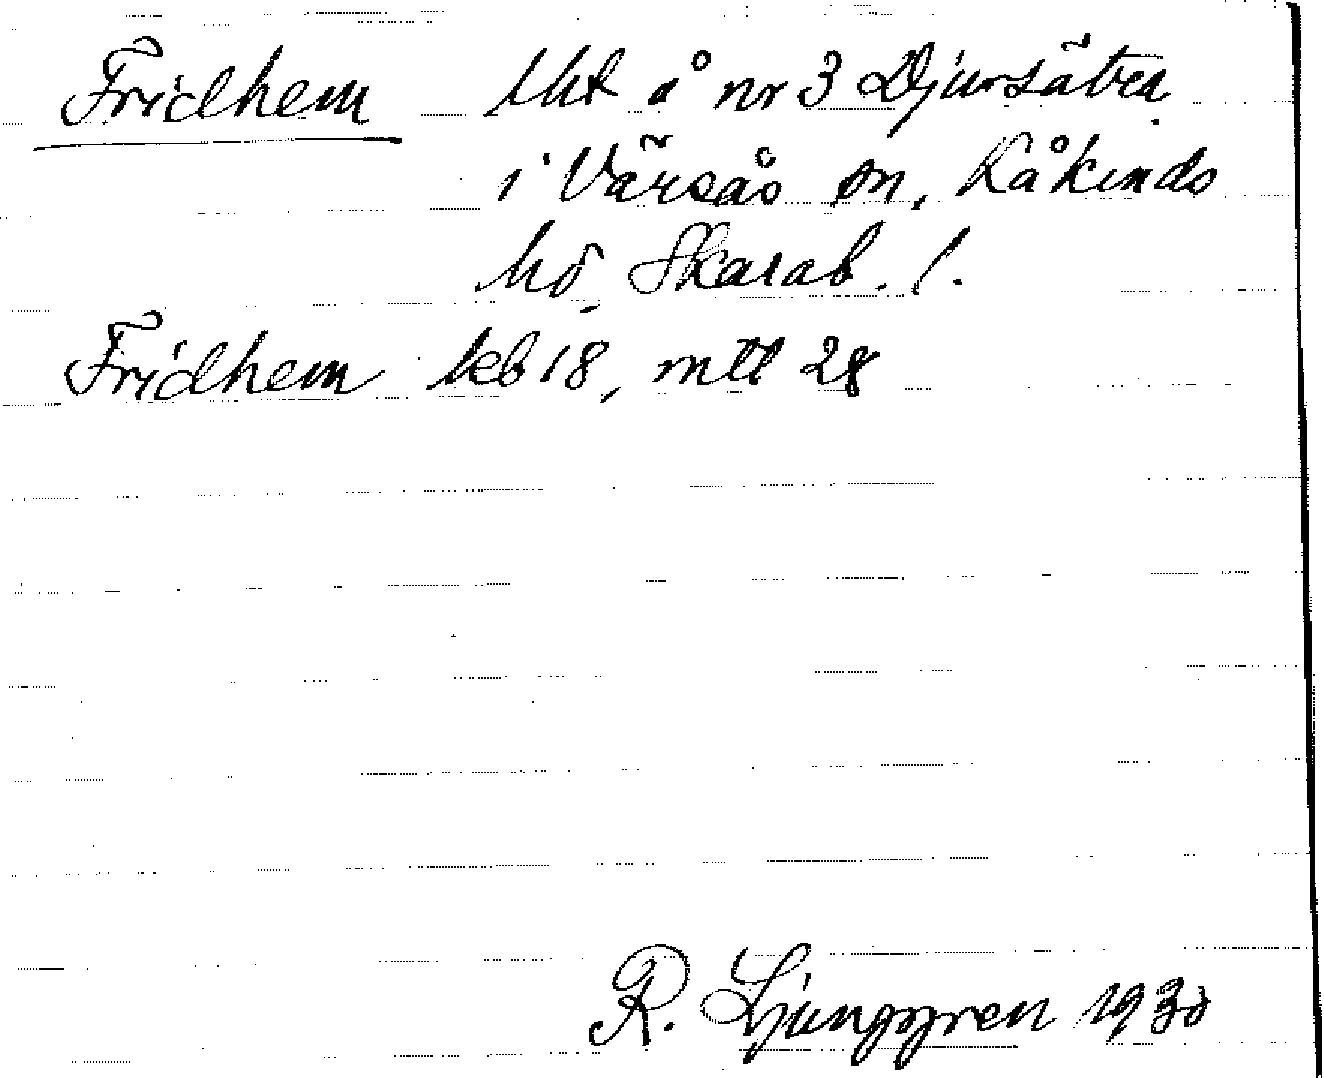 Fridhem lht å nr 3 Djursätra
i Värsås sn, Kåkinds
hd, Skarab. l.
Fridhem kb 18, mtl 28
R. Ljunggren 1930